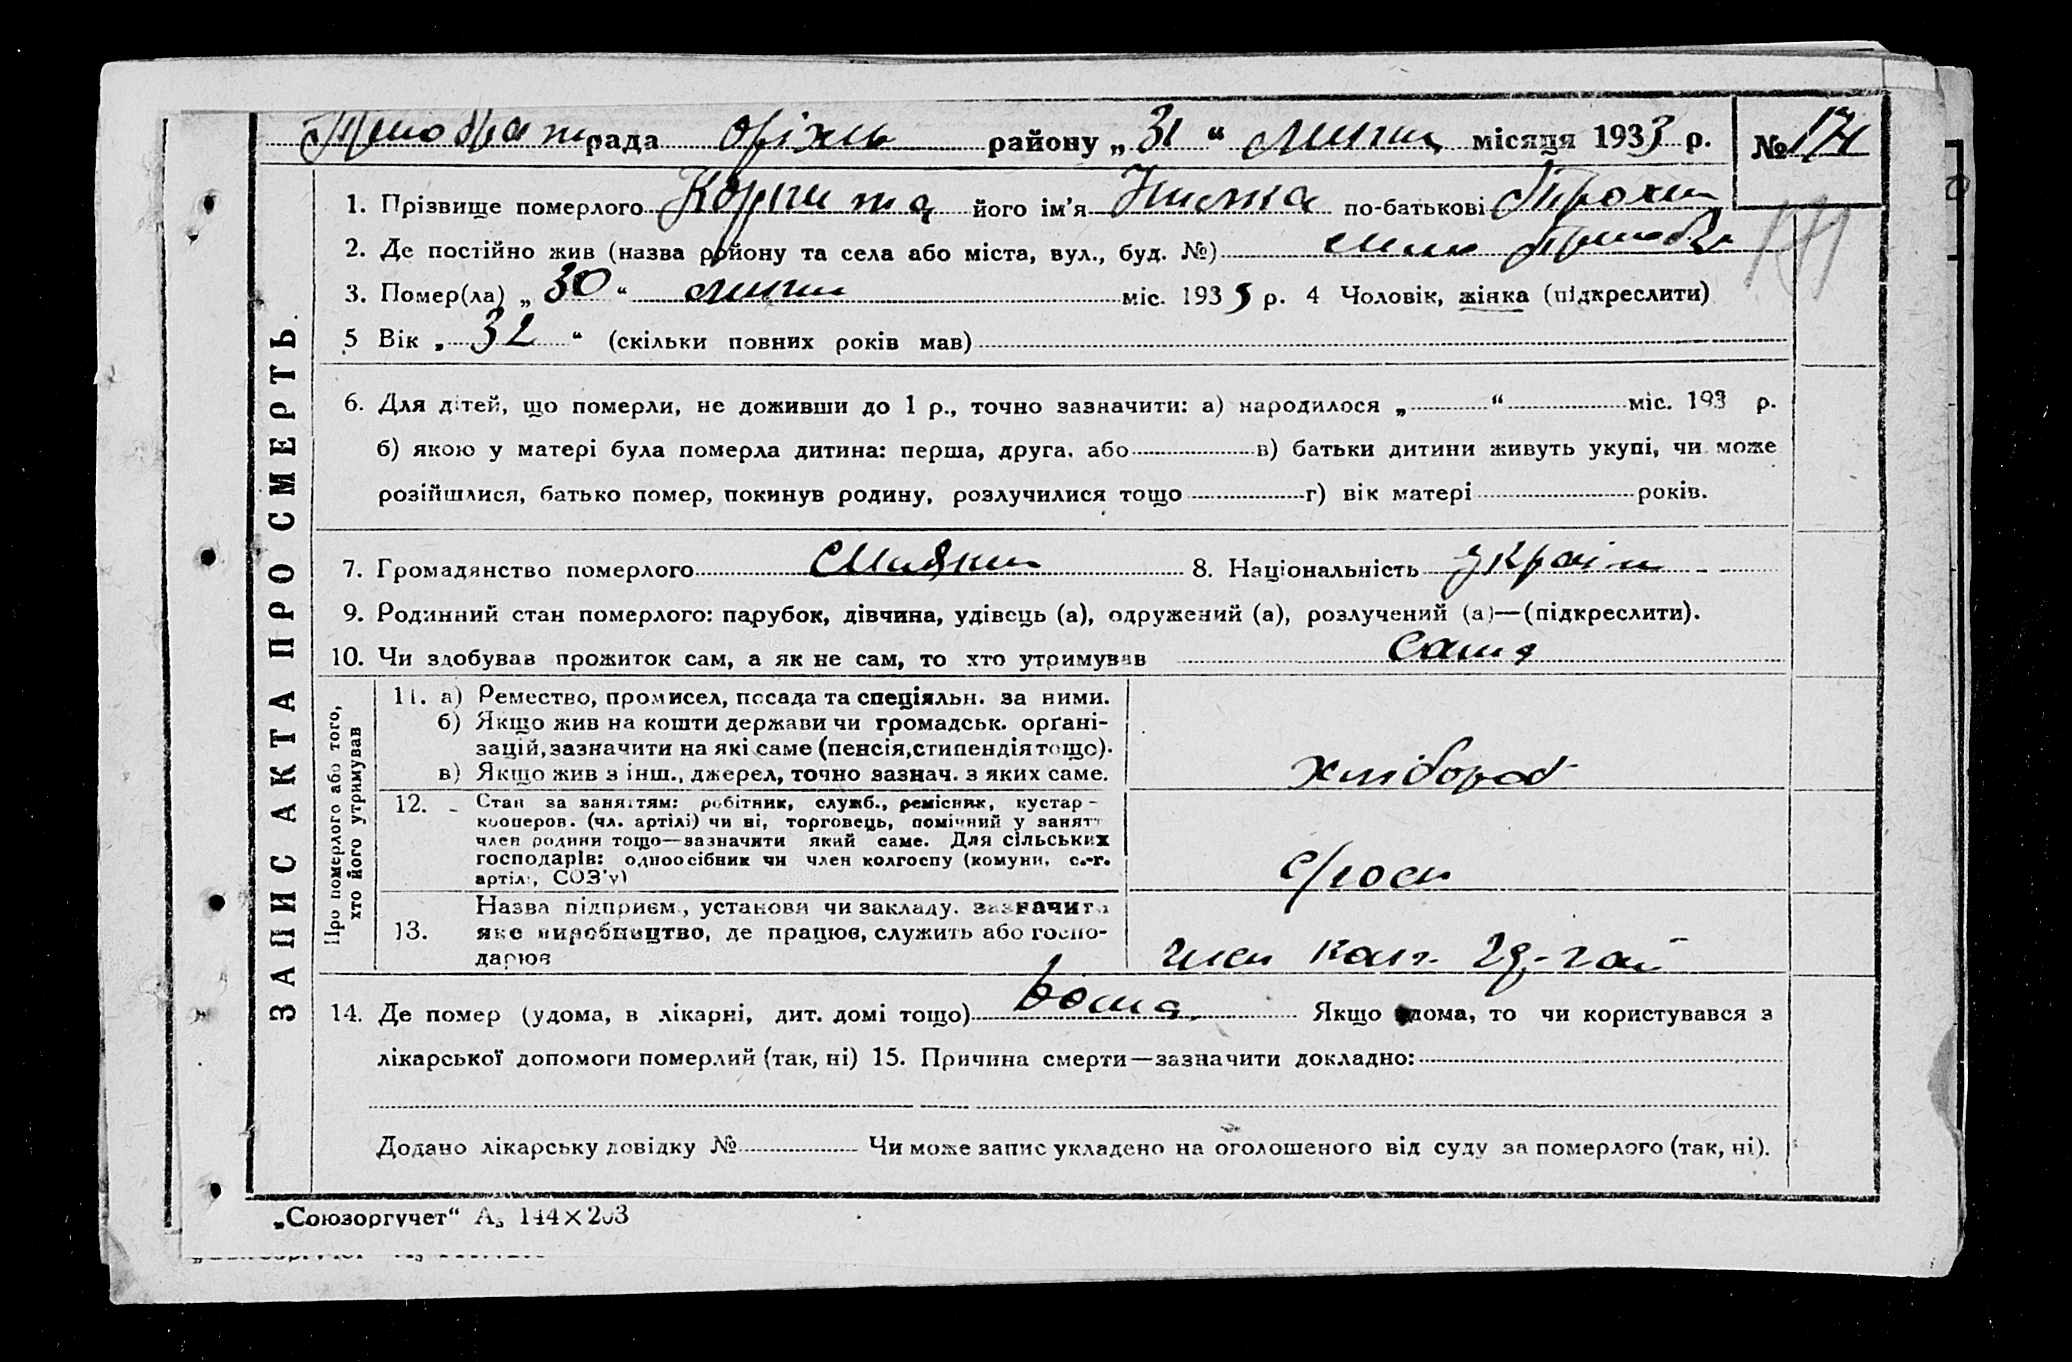 рада оріхів району „31“ липня місяця 1933 р. №171
1. Прізвище померлого Корнита його ім'я по-батькові Трохим
2. Де постійно жив (назва району та села або міста, вул., буд. №) село
3. Помер(ла) „30“ липня міс. 1933 р. 4 Чоловік, жінка (підкреслити)
5 Вік „32“ (скільки повних років мав)
6. Для дітей, що померли, не доживши до 1 р., точно зазначити: а) народилося „ “ міс. 193 р.
б) якою у матері була померла дитина: перша, друга, або в) батьки дитини живуть укупі, чи може
розійшлися, батько помер, покинув родину, розлучилися тощо г) вік матері років.
7. Громадянство померлого 8. Національність україн
9. Родинний стан померлого: парубок, дівчина, удівець (а), одружений (а), розлучений (а)—(підкреслити).
10. Чи здобував прожиток сам, а як не сам, то хто утримував сама
ЗАПИС АКТА ПРО СМЕРТЬ.
Про померлого або того, хто його утримував
11. а) Ремество, промисел, посада та спеціяльн. за ними.
б) Якщо жив на кошти держави чи громадськ. орґані-
зацій, зазначити на які саме (пенсія, стипендія тощо).
в) Якщо жив з інш., джерел, точно зазнач. з яких саме.
хлібороб
12. - Стан за заняттям: робітник, служб., ремісник, кустар -
кооперов. (чл. артілі) чи ні, торговець, помічний у занятт
член родини тощо—зазначити який саме. Для сільських
господарів: одноосібник чи член колгоспу (комуни, с.-г.
артілі, СОЗ'у)
13. Назва підприєм., установи чи закладу. зазначити
яке виробництво, де працює, служить або госпо-
дарює
член колг.
14. Де помер (удома, в лікарні, дит. домі тощо) вдома Якщо вдома, то чи користувався з
лікарської допомоги померлий (так, ні) 15. Причина смерти—зазначити докладно:
Додано лікарську довідку № Чи може запис укладено на оголошеного від суду за померлого (так, ні).
„Союзоргучет“ А₅ 144×203